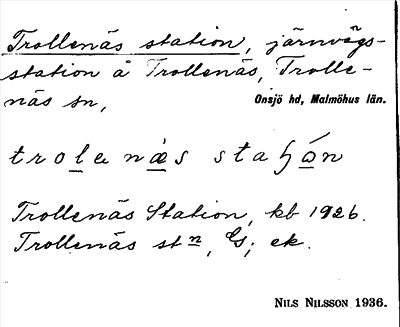 Trollenäs station, järnvägs-
station å Trollenäs, Trolle-
näs sn, Onsjö hd, Malmöhus län.
Trollenäs Station, kb 1926.
Trollenäs stn, GS; ek.
NILS NILSSON 1936.